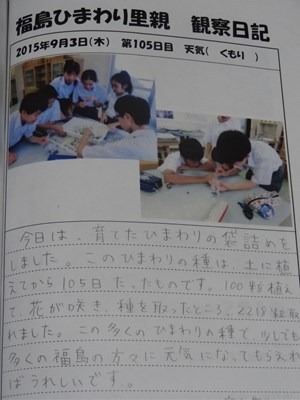 福島ひまわり里親　観察日記
2015年9月3日(木)　第105日目　天気(　くもり　)
今日は、育てたひまわりの袋詰めを
しました。このひまわりの種は、土に植
えてから105日たったものです。100粒植え
て、花が咲き、種を取ったところ、2218粒とれ
れました。この多くのひまわりの種で、少しでも
多くの福島の方々に元気になってもらえれ
ばうれしいです。